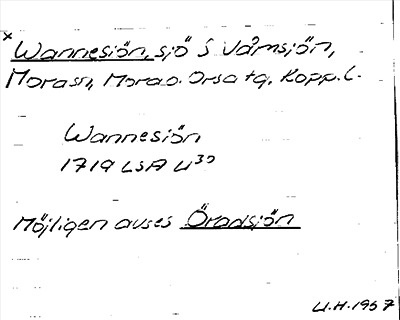 x
Wannesiön, sjö S Våmsjön,
Morasn, Mora o. Orsa tg, Kopp. L.
Wannesiön
1719 LSA U³⁰
Möjligen avses Öradsjön
U.H. 1957